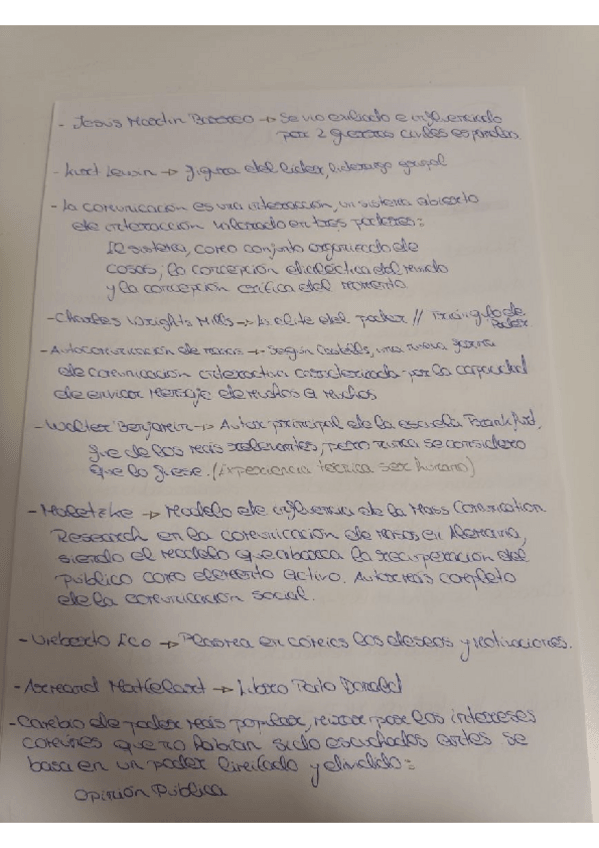 - Jesus Martin Barbero → Se vio exiliado e influenciado
por 2 guerras civiles españolas.
- Kurt Lewin → figura del lider, liderazgo grupal
- La comunicación es una interacción, un sistema abierto
de interacción valorado en tres factores:
El sistema, como conjunto organizado de
cosas; la concepción dialéctica del mundo
y la concepción crítica del momento.
- Charles Wrights Mills → La elite del poder // Triangulo de
Poder
- Autocomunicación de masas → Según Castells, una nueva forma
de comunicación interactiva caracterizada por la capacidad
de enviar mensaje de muchos a muchos
- Walter Benjamin → Autor principal de la escuela Frankfurt,
fue de los más relevantes, pero nunca se consideró
que lo fuese. (Experiencia técnica ser humano)
- Maletzke → Modelo de influencia de la Mass Comunication
Research en la comunicación de masas en Alemania,
siendo el modelo que abarca la recuperación del
público como elemento activo. Autor más completo
de la comunicación social.
- Umberto Eco → Plasma en comics los deseos y
- Armand Mattelart → Libro Pato Donald
- Cambio de poder más popular, mirar por los intereses
comunes que no habían sido escuchados antes se
basa en un poder limitado y dividido:
Opinión Pública